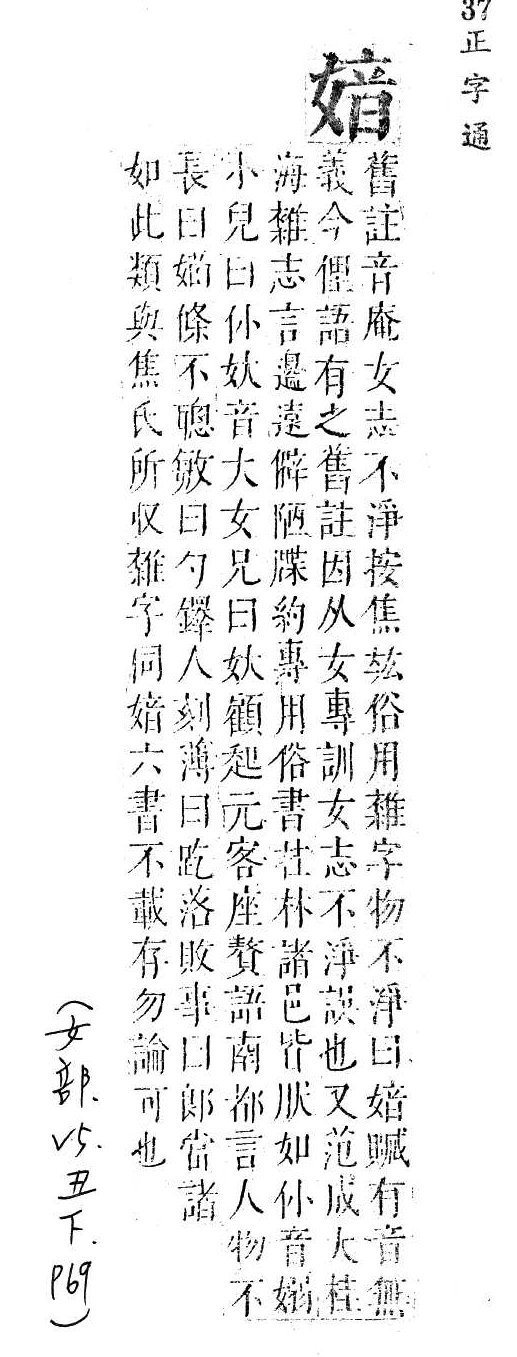 37正字通
媕
舊註音庵女志不淨按焦竑俗用雜字物不淨曰媕贓有音無
義今俚語有之舊註因从女專訓女志不淨誤也又范成大桂
海雜志言邊遠僻陋牒約專用俗書桂林諸邑皆然如仦音嫋
小兒曰仦奀音大女兄曰奀顧起元客座贅語南都言人物不
長曰㛂條不聰敏曰勺鐸人刻薄曰趷落敗事曰郎當諸
如此類與焦氏所収雜字同媕六書不載存勿論可也
(女部.V5.丑下.P69)